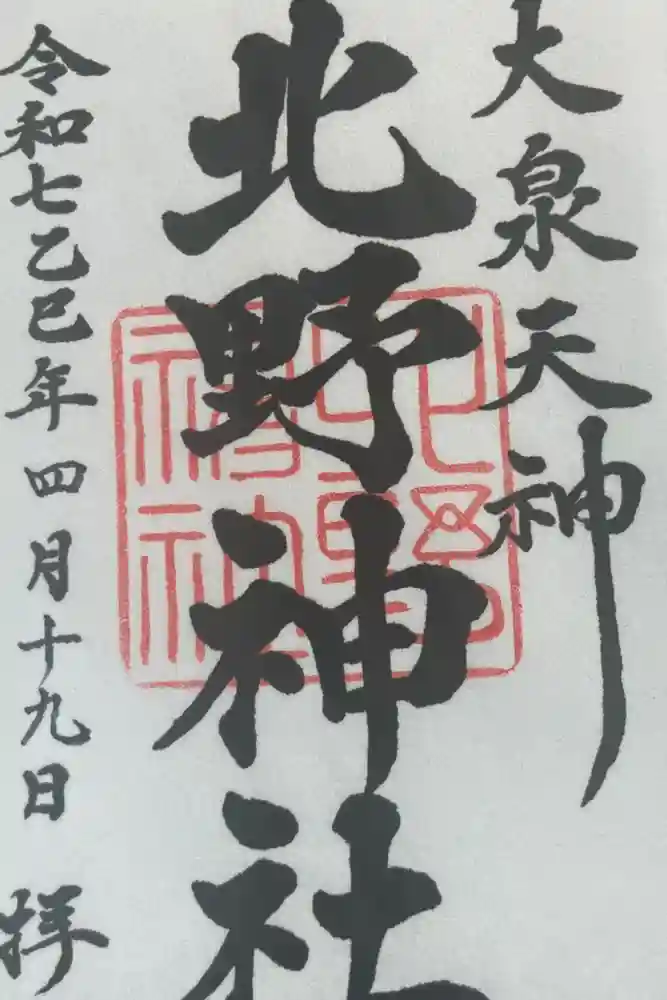 大泉天神
北野神社
北野神社
令和七乙巳年四月十九日 拝